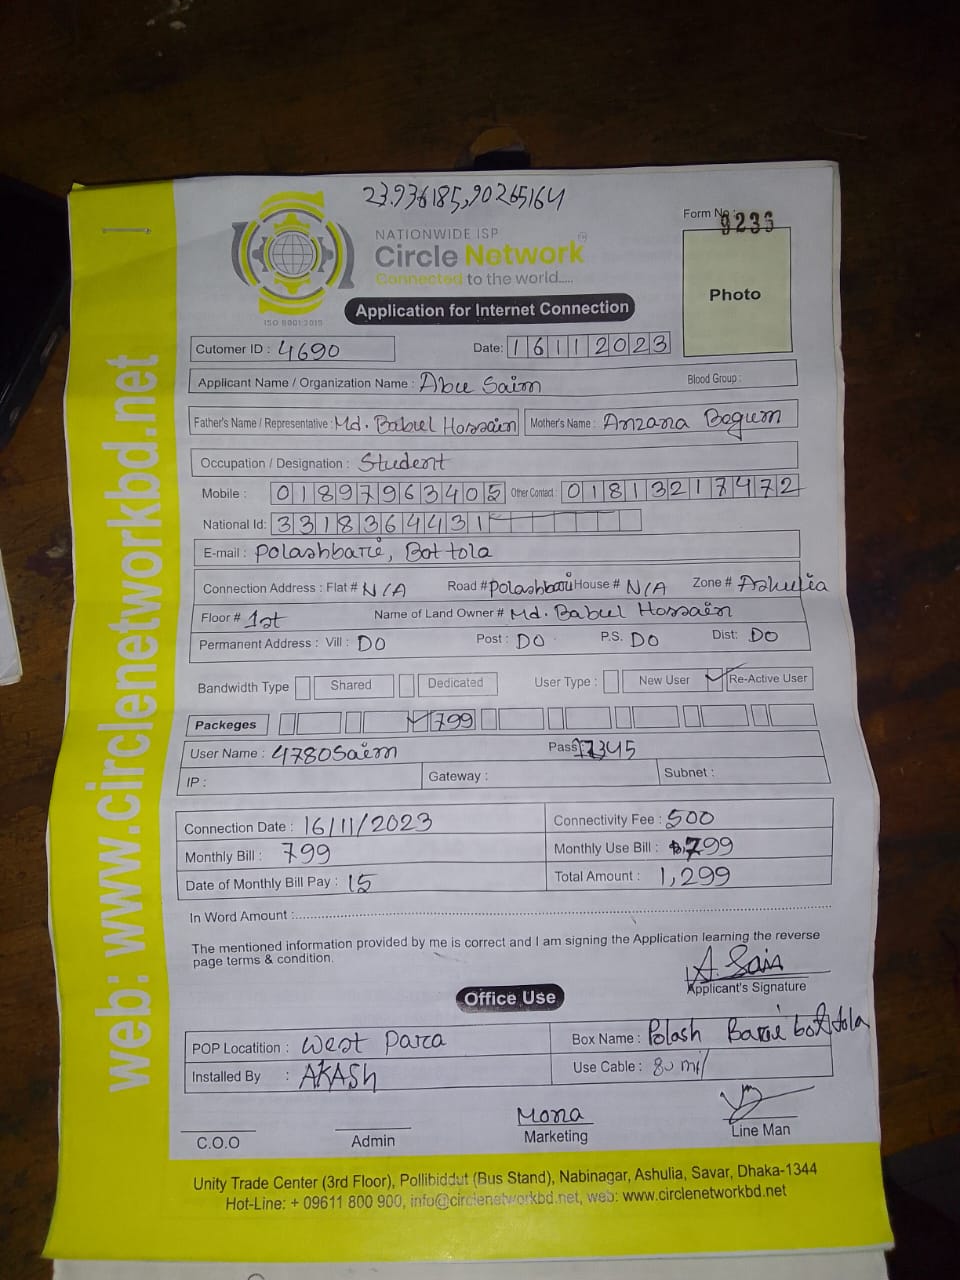 23.936185,90265164
NATIONWIDE ISP
Circle Network
Connected to the world.....
ISO 9001:2015
Form No: 9236
Photo
Application for Internet Connection
Cutomer ID : 4690 Date: 16112023
Applicant Name / Organization Name : Abu Saim Blood Group :
Father's Name / Representative : Md. Babul Hossain Mother's Name : Anzana Begum
Occupation / Designation : Student
Mobile : 01897963405 Other Contact : 01813217472
National Id: 3318364431
E-mail : Polashbarie, Bottola
Connection Address : Flat # N/A Road # Polashbari House # N/A Zone # Ashulia
Floor # 1st Name of Land Owner # Md. Babul Hossain
Permanent Address : Vill : DO Post : DO P.S. DO Dist: DO
Bandwidth Type Shared Dedicated User Type : New User Re-Active User
Packeges 799
User Name : 4780Saim Pass: 12345
IP : Gateway : Subnet :
Connection Date : 16/11/2023 Connectivity Fee : 500
Monthly Bill : 799 Monthly Use Bill : 799
Date of Monthly Bill Pay : 15 Total Amount : 1,299
In Word Amount :
The mentioned information provided by me is correct and I am signing the Application learning the reverse
page terms & condition.
A. Sain
Applicant's Signature
Office Use
POP Locatition : West Para Box Name : Polash Barie bottola
Installed By : AKASH Use Cable : 80 mi
Mona
C.O.O Admin Marketing Line Man
Unity Trade Center (3rd Floor), Pollibiddut (Bus Stand), Nabinagar, Ashulia, Savar, Dhaka-1344
Hot-Line: + 09611 800 900, info@circlenetworkbd.net, web: www.circlenetworkbd.net
web: www.circlenetworkbd.net